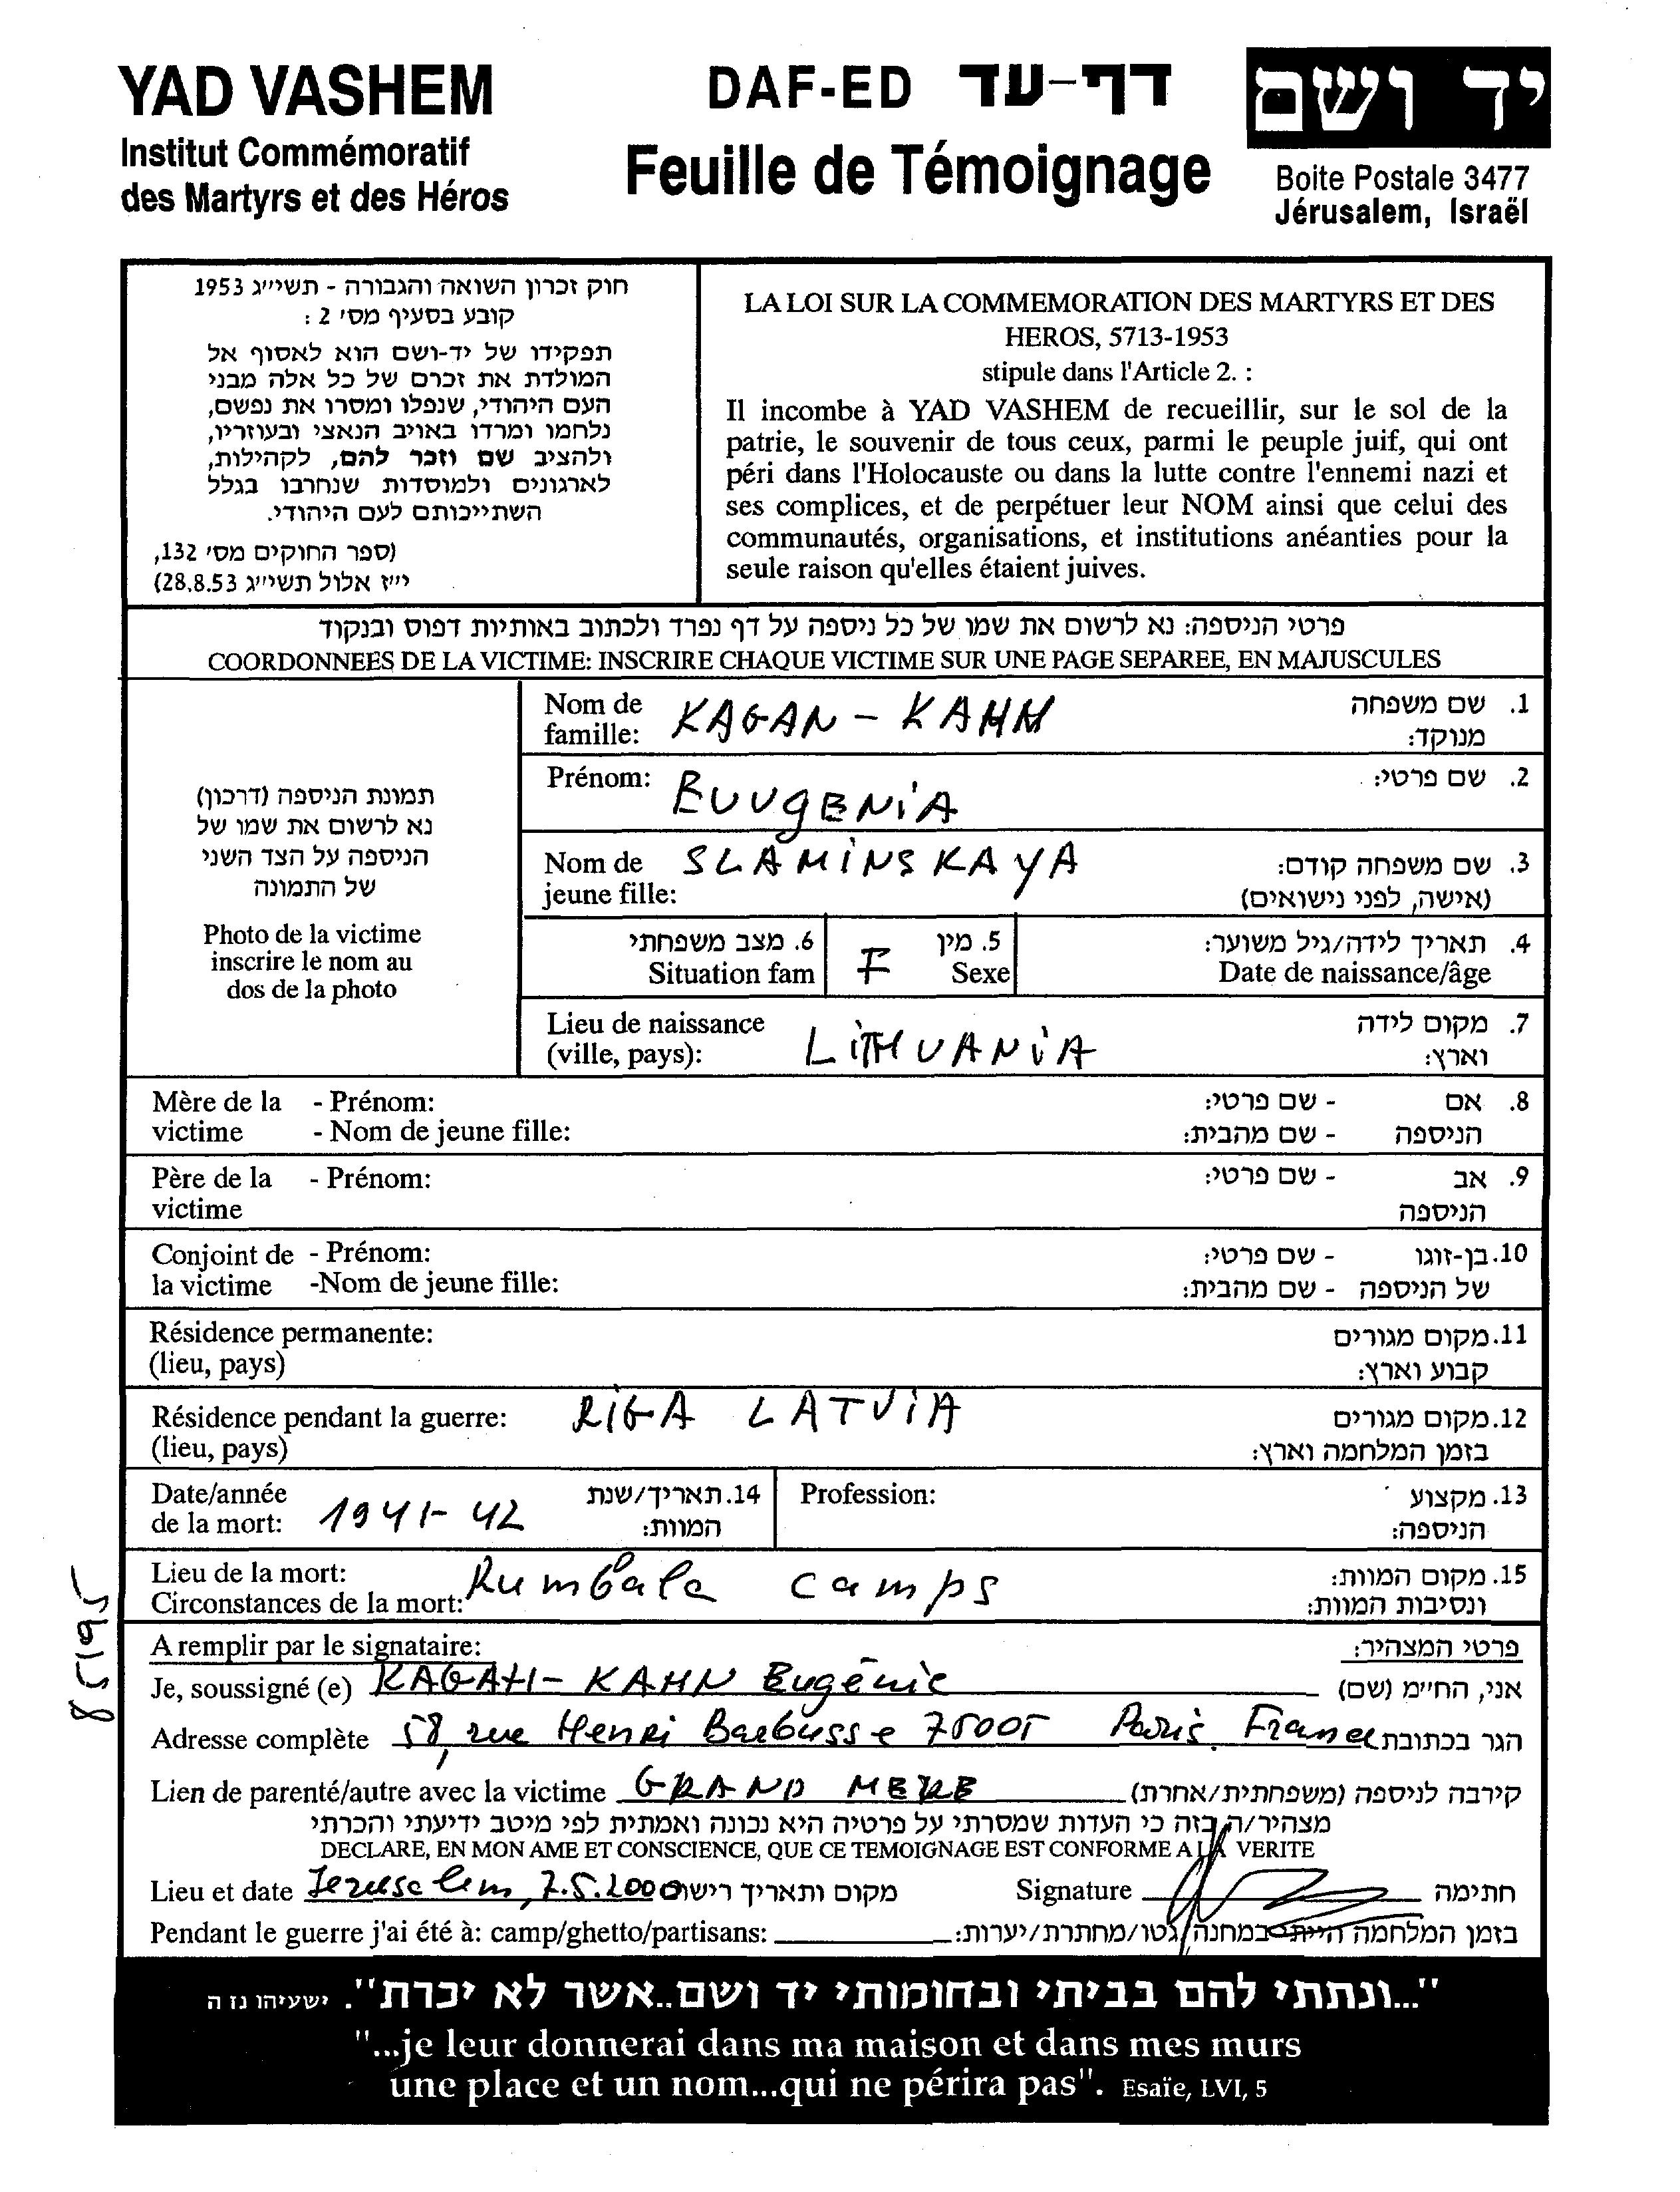 YAD VASHEM
Institut Commémoratif
des Martyrs et des Héros
DAF-ED דף-עד
Feuille de Témoignage
יד ושם
Boite Postale 3477
Jérusalem, Israël
חוק זכרון השואה והגבורה - תשי״ג 1953
קובע בסעיף מס׳ 2 :
תפקידו של יד-ושם הוא לאסוף אל
המולדת את זכרם של כל אלה מבני
העם היהודי, שנפלו ומסרו את נפשם,
נלחמו ומרדו באויב הנאצי ובעוזריו,
ולהציב שם וזכר להם, לקהילות,
לארגונים ולמוסדות שנחרבו בגלל
השתייכותם לעם היהודי.
(ספר החוקים מס׳ 132,
י״ז אלול תשי״ג 28.8.53)
LA LOI SUR LA COMMEMORATION DES MARTYRS ET DES
HEROS, 5713-1953
stipule dans l'Article 2. :
Il incombe à YAD VASHEM de recueillir, sur le sol de la
patrie, le souvenir de tous ceux, parmi le peuple juif, qui ont
péri dans l'Holocauste ou dans la lutte contre l'ennemi nazi et
ses complices, et de perpétuer leur NOM ainsi que celui des
communautés, organisations, et institutions anéanties pour la
seule raison qu'elles étaient juives.
פרטי הניספה: נא לרשום את שמו של כל ניספה על דף נפרד ולכתוב באותיות דפוס ובנקוד
COORDONNEES DE LA VICTIME: INSCRIRE CHAQUE VICTIME SUR UNE PAGE SEPAREE, EN MAJUSCULES
תמונת הניספה (דרכון)
נא לרשום את שמו של
הניספה על הצד השני
של התמונה
Photo de la victime
inscrire le nom au
dos de la photo
Nom de KAGAN - KAHN 1. שם משפחה
famille: מנוקד:
Prénom: EUUGENIA 2. שם פרטי:
Nom de SLAMINSKAYA 3. שם משפחה קודם:
jeune fille: (אישה, לפני נישואים)
6. מצב משפחתי F 5. מין 4. תאריך לידה/גיל משוער:
Situation fam Sexe Date de naissance/âge
Lieu de naissance LITHUANIA 7. מקום לידה
(ville, pays): וארץ:
Mère de la - Prénom: - שם פרטי: 8. אם
victime - Nom de jeune fille: - שם מהבית: הניספה
Père de la - Prénom: - שם פרטי: 9. אב
victime הניספה
Conjoint de - Prénom: - שם פרטי: 10. בן-זוגו
la victime -Nom de jeune fille: - שם מהבית: של הניספה
Résidence permanente: 11. מקום מגורים
(lieu, pays) קבוע וארץ:
Résidence pendant la guerre: RIGA LATVIA 12. מקום מגורים
(lieu, pays) בזמן המלחמה וארץ:
Date/année 1941-42 14. תאריך/שנת Profession: 13. מקצוע
de la mort: המוות: הניספה:
Lieu de la mort: Rumbala camps 15. מקום המוות:
Circonstances de la mort: ונסיבות המוות:
A remplir par le signataire: פרטי המצהיר:
Je, soussigné (e) KAGAN- KAHN Eugénie אני, החיימ (שם)
Adresse complète 58, rue Henri Barbusse 75005 Paris. France הגר בכתובת
Lien de parenté/autre avec la victime GRAND MERE קירבה לניספה (משפחתית/אחרת)
מצהיר/ה בזה כי העדות שמסרתי על פרטיה היא נכונה ואמתית לפי מיטב ידיעתי והכרתי
DECLARE, EN MON AME ET CONSCIENCE, QUE CE TEMOIGNAGE EST CONFORME A LA VERITE
Lieu et date Jerusalem, 7.5.2000 מקום ותאריך רישו Signature חתימה
Pendant le guerre j'ai été à: camp/ghetto/partisans: בזמן המלחמה הייתי במחנה/גטו/מחתרת/יערות:
"...ונתתי להם בביתי ובחומותי יד ושם..אשר לא יכרת". ישעיהו נז ה
"...je leur donnerai dans ma maison et dans mes murs
une place et un nom...qui ne périra pas". Esaïe, LVI, 5